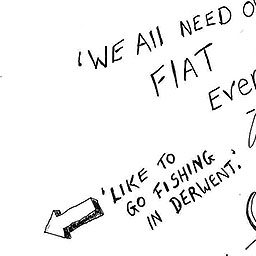 'WE All NEED
FIAT
Ever
'LIKE TO
GO FISHING
IN DERWENT.'